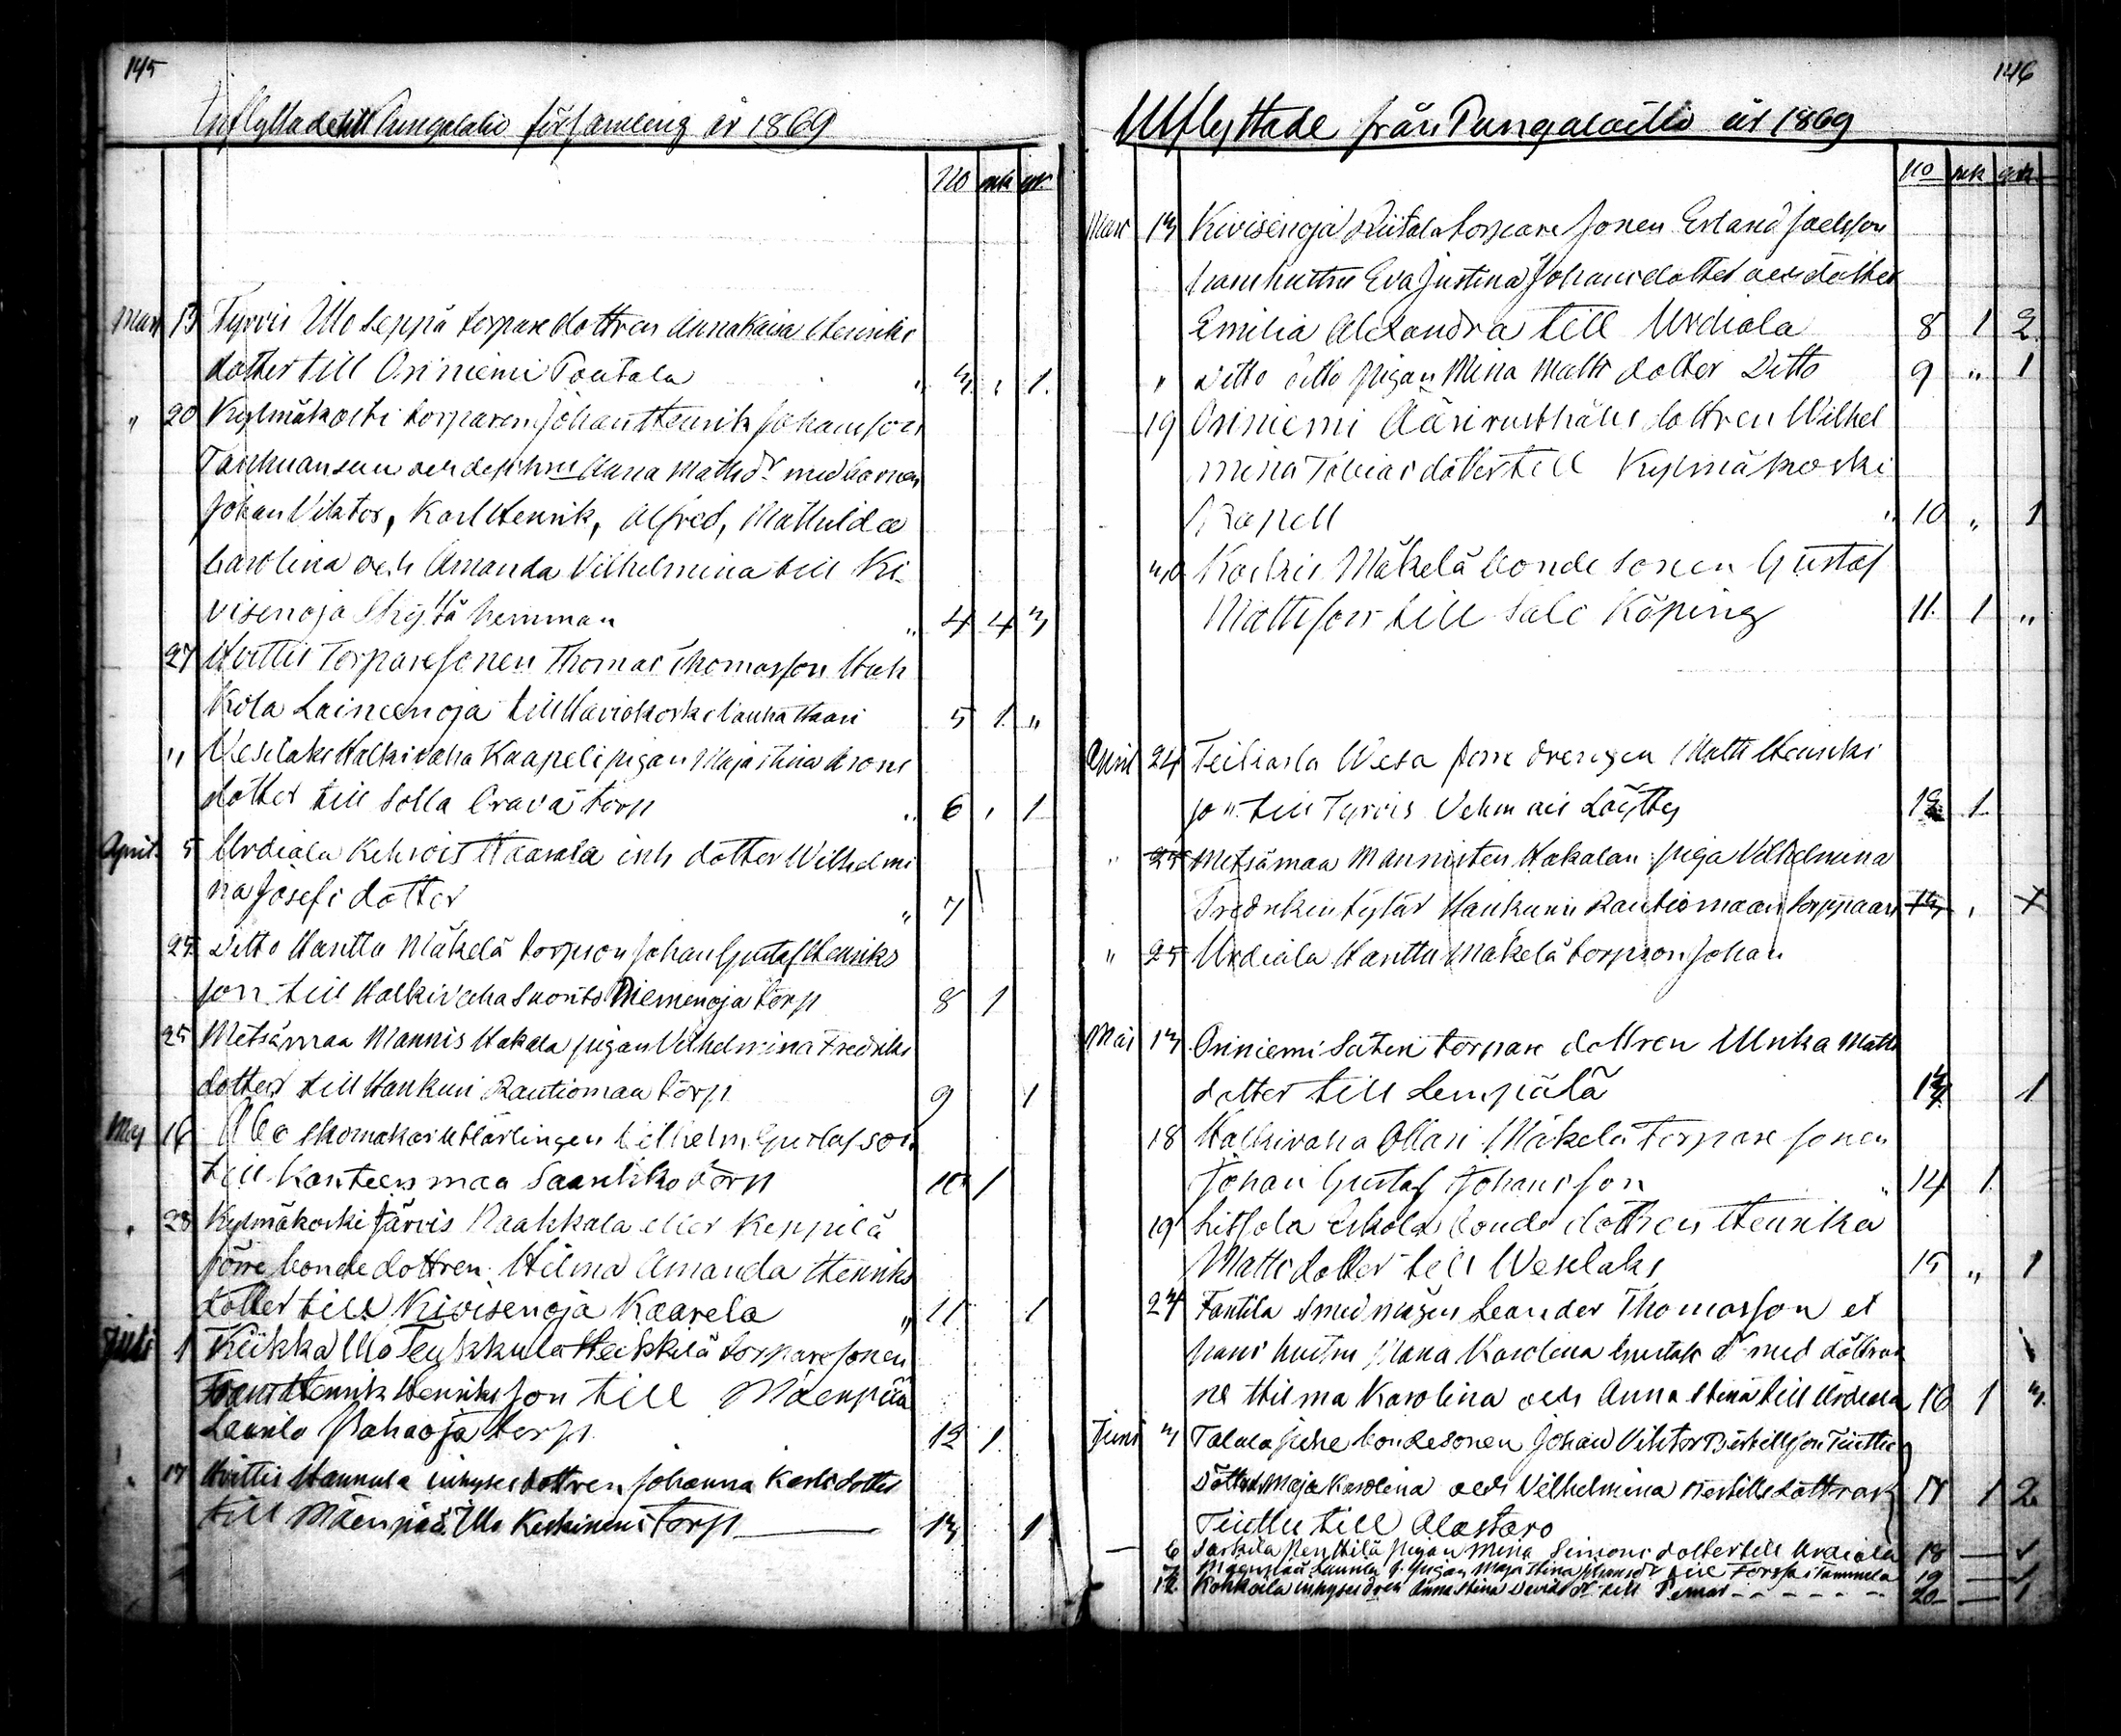 145
Inflyttade till Pungalaitio församling år 1869
No mk qk
Mars 13 Tyrvis Illo Seppä torpare dottren Anna Kaisa Henriks
dotter till Oriniemi Poutala " 3 " 1
" 20 Kylmäkoski torparen Johan Henrik Johansson
Tankuansuu och des hru Anna Mattsdr med barnen
Johan Viktor, Karl Henrik, Alfred, Mathilda
Carolina och Amanda Vilhelmina till Ki-
visenoja Skyttä hemman " 4 4 3
27 Hvittis Torparesonen Thomas Thomasson Huh
Kola Laineenoja till Haviokoski 5 1 "
" Vesilaks Halkivaha Kaapeli pigan Maja Stina Arons
dotter till Solla Orava torp " 6 " 1
April 5 Urdiala Kehrois Haavala inh dotter Wilhelmi
na Josefs dotter " 7
25 Ditto Hanttu Mäkelä torpson Johan Gustaf Henriks
son till Halkivaha Niemenoja torp 8 1
25 Metsämaa Mannis Hakala pigan Vilhelmina Fredriks
dotter till Hankuri Rautiomaa torp 9 1
Maj 16 Åbo skomakare lärlingen Vilhelm Gustafsson
till Kanteenmaa Saarikko torp 10 1
" 28 Kylmäkoski Järvis Raakkala eller Keppilä
förre bonde dottren Hilma Amanda Henriks
dotter till Kivisenoja Kaarela " 11 1
Juli 1 Kiikka Illo Teukkula Heikkilä torpare sonen
Frans Henrik Henriksson till Mäenpää
Laurila Pahaoja torp 12 1
" 17 Hvittis Hannula inhyses dottren Johanna Karls dotter
till Mäenpää Ylli Keskinens Torp 13 1
146
Utflyttade från Pungalaitio år 1869
No mk qk
Mars 13 Kivisenoja Riitala torpare sonen Erland Joelsson
hans hustru Eva Justina Johansdotter och dotter
Emilia Alexandra till Urdiala 8 1 2
" Ditto ditto pigan Mina Matts dotter Ditto 9 " 1
19 Oriniemi Ääri rusthålls dottren Wilhel
mina Tobias dotter till Kylmäkoski
Kapell " 10 " 1
" Mäkelä bonde sonen Gustaf
Mattsson till Salo Köping 11 1 "
April 24 Wesa förre drengen Matts Henriks
son till Tyrvis Vehmais Löytty 12 1
" 25 Metsämaa Mannisten Hakalan piga Vilhelmina
Fredrikin tytär Hankurin Rautiomaan torppaan 13 " 1
" 25 Urdiala Hanttu Mäkelä torpson Johan
Maj 13 Oriniemi Säteri torpare dottren Ulrika Matts
dotter till Lempäälä 13 1
18 Halkivaha Ollari Mäkelä torpare sonen
Johan Gustaf Johansson " 14 1
19 Eskola bonde dottren Henrika
Mattsdotter till Wesilaks 15 " 1
24 Leander Thomasson et
hans hustru Karolina Gustafs dr med döttrar
ne Hilma Karolina och Anna Stina till Urdiala 16 1 3
Juni 3 Talala bondesonen Johan Viktor Bertillsson
Döttrar Maja Karolina och Vilhelmina Bertills döttrar 17 1 2
till Alastaro
6 Penttilä pigan Mina Simons dotter till Urdiala 18 — 1
7 Mäenpää Laurila pigan Maja Stina till Forssa i Tammela 19 — 1
12 inhyses Anna Stina Davids dr till Pemar 20 — 1